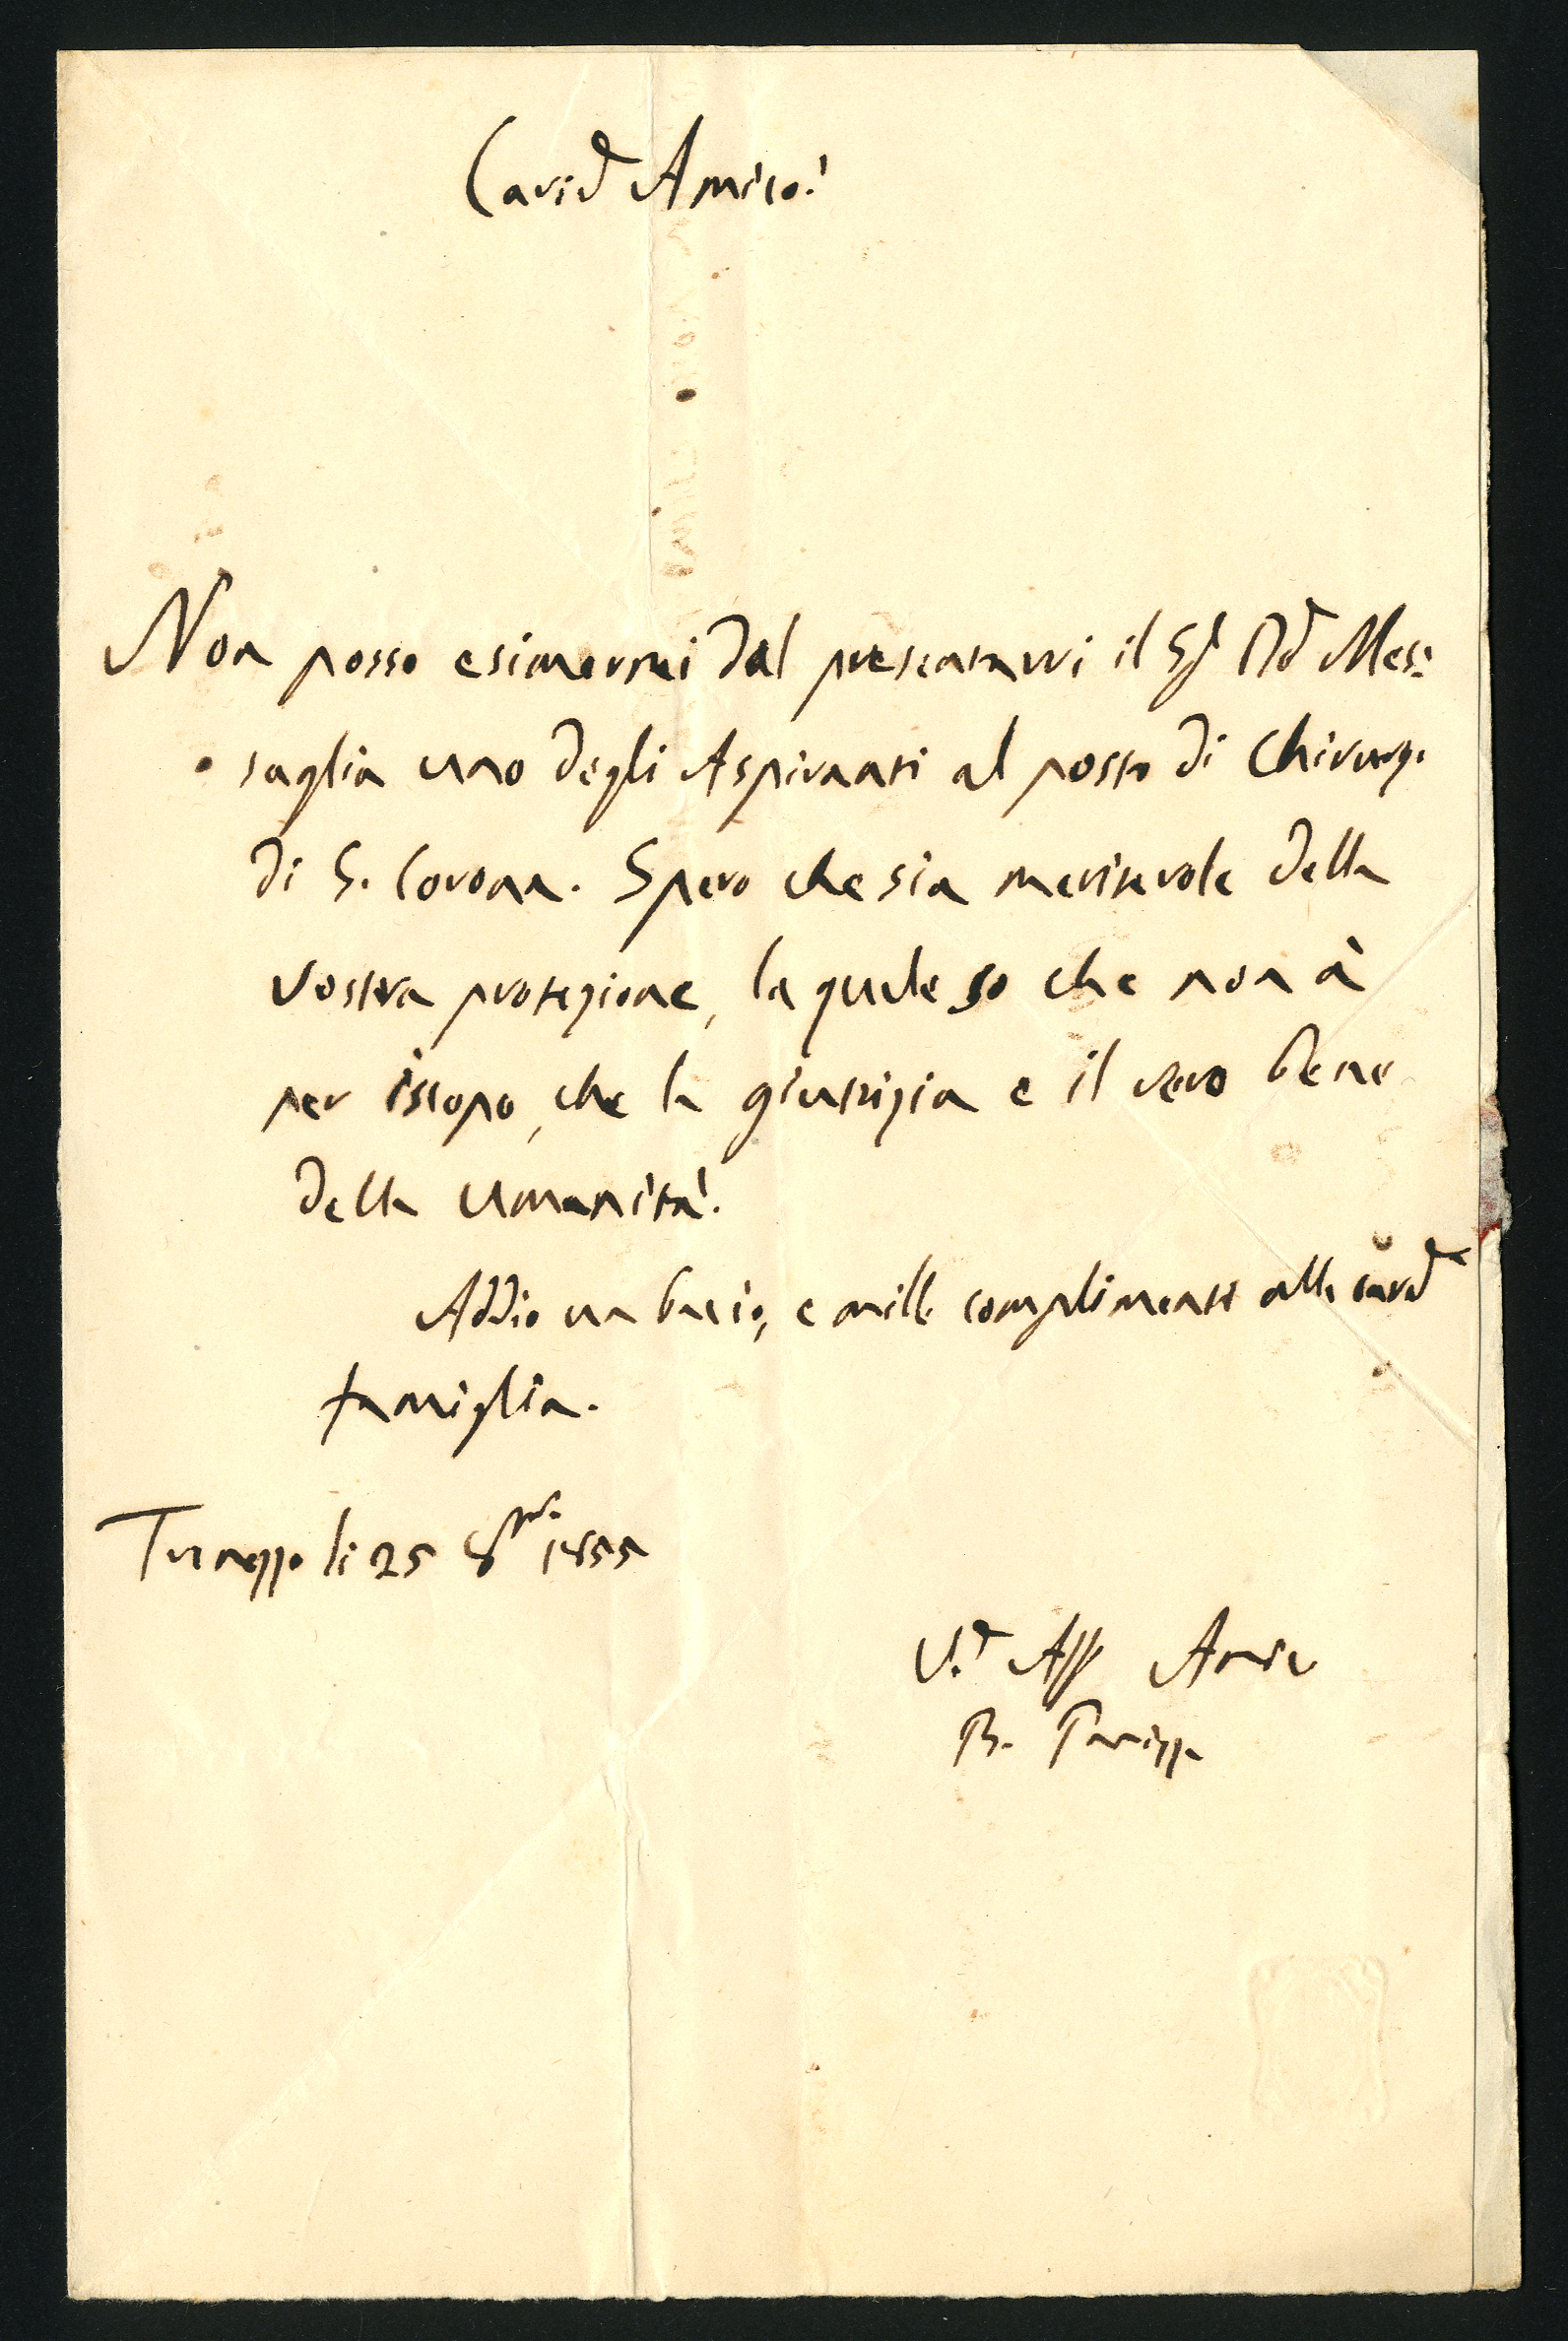 Carid Amico!
Non posso esimermi dal presentarvi il Sg Dd Mes:
saglia uno degli Aspiranti al posto di Chirurg.
di S. Corona. Spero che sia meritevole della
vostra protezione, la quale so che non à
per iscopo, che la giustizia e il vero bene
della Umanità.
Addio un bacio, e mille complimenti alla card
famiglia.
li 25 8bre 1855
V.o Aff Amico
B. Panizza